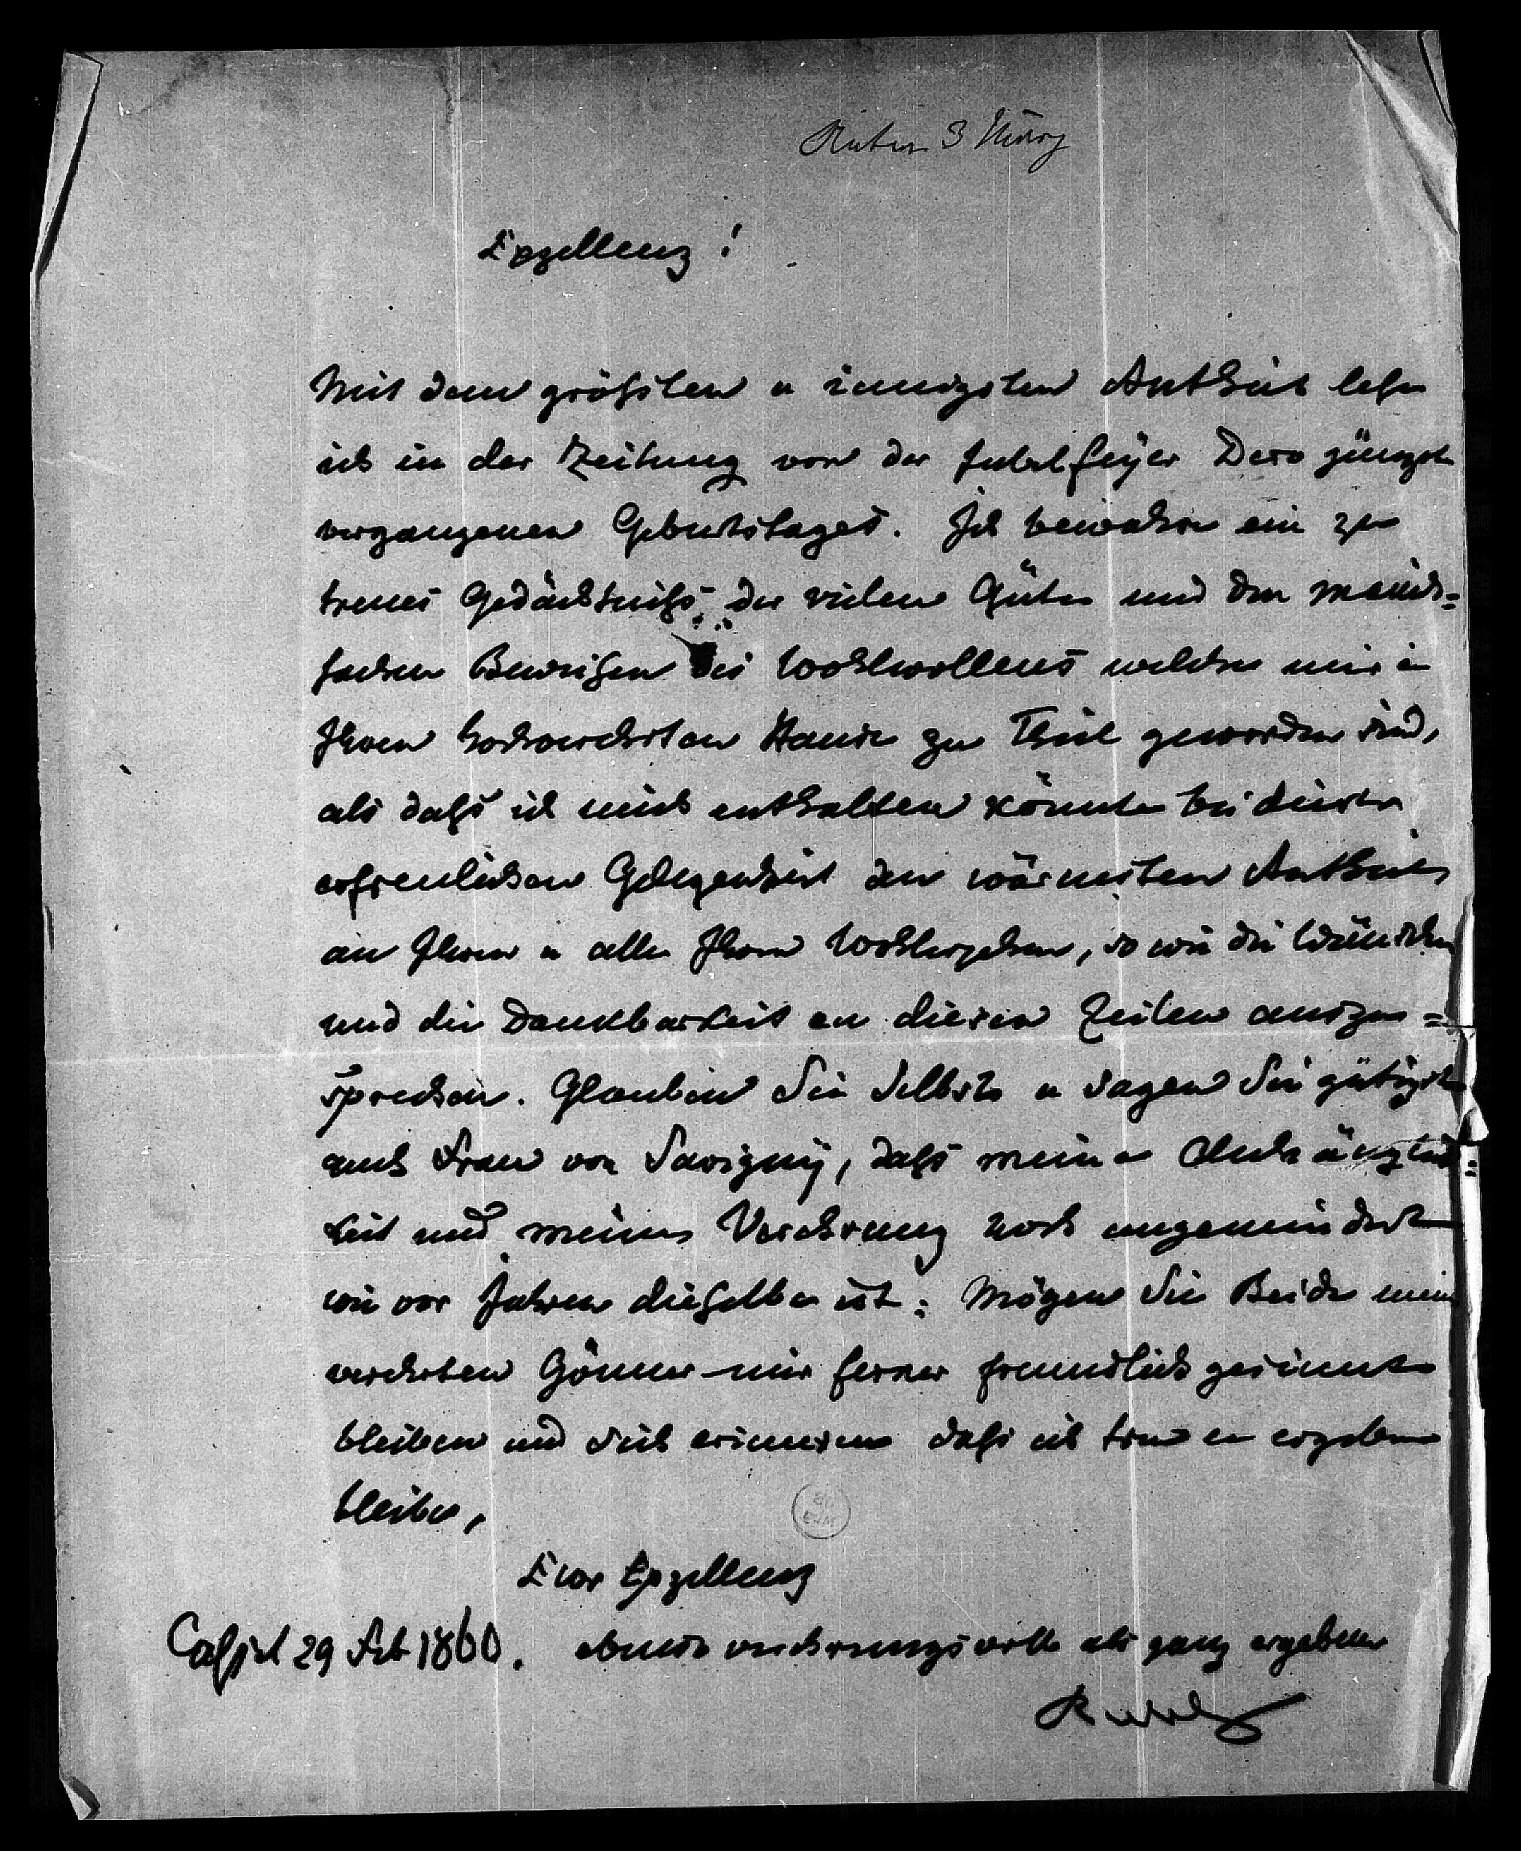 3 März
Exzellenz!
Mit dem größten u innigsten Antheil lese
ich in der Zeitung von der Jubelfeyer Dero jüngst
vergangenen Geburtstages. Ich bewahre ein zu
treues Gedächtniß der vielen Güte und den manich=
fachen Beweisen des Wohlwollens welche mir in
Ihrem hochverehrten Hause zu Theil geworden sind,
als daß ich mich enthalten könnte bei dieser
erfreulichen Gelegenheit den wärmsten Antheil
an Ihrem u alle Ihrem Wohlergehen, so wie die Wünsche
und die Dankbarkeit in diesen Zeilen auszu=
sprechen. Glauben Sie Selbst u sagen Sie gütigst
auch Frau von Savigny, daß meine Anhänglich=
keit und meine Verehrung noch ungemindert
wie vor Jahren dieselbe ist. Mögen Sie Beide meine
verehrten Gönner mir ferner freundlich gesinnt
bleiben und sich erinnern daß ich treu u ergeben
bleibe,
Euer Exzellenz
Cassel 29 Feb 1860. ebenso verehrungsvoll als ganz ergebener
Ruhl